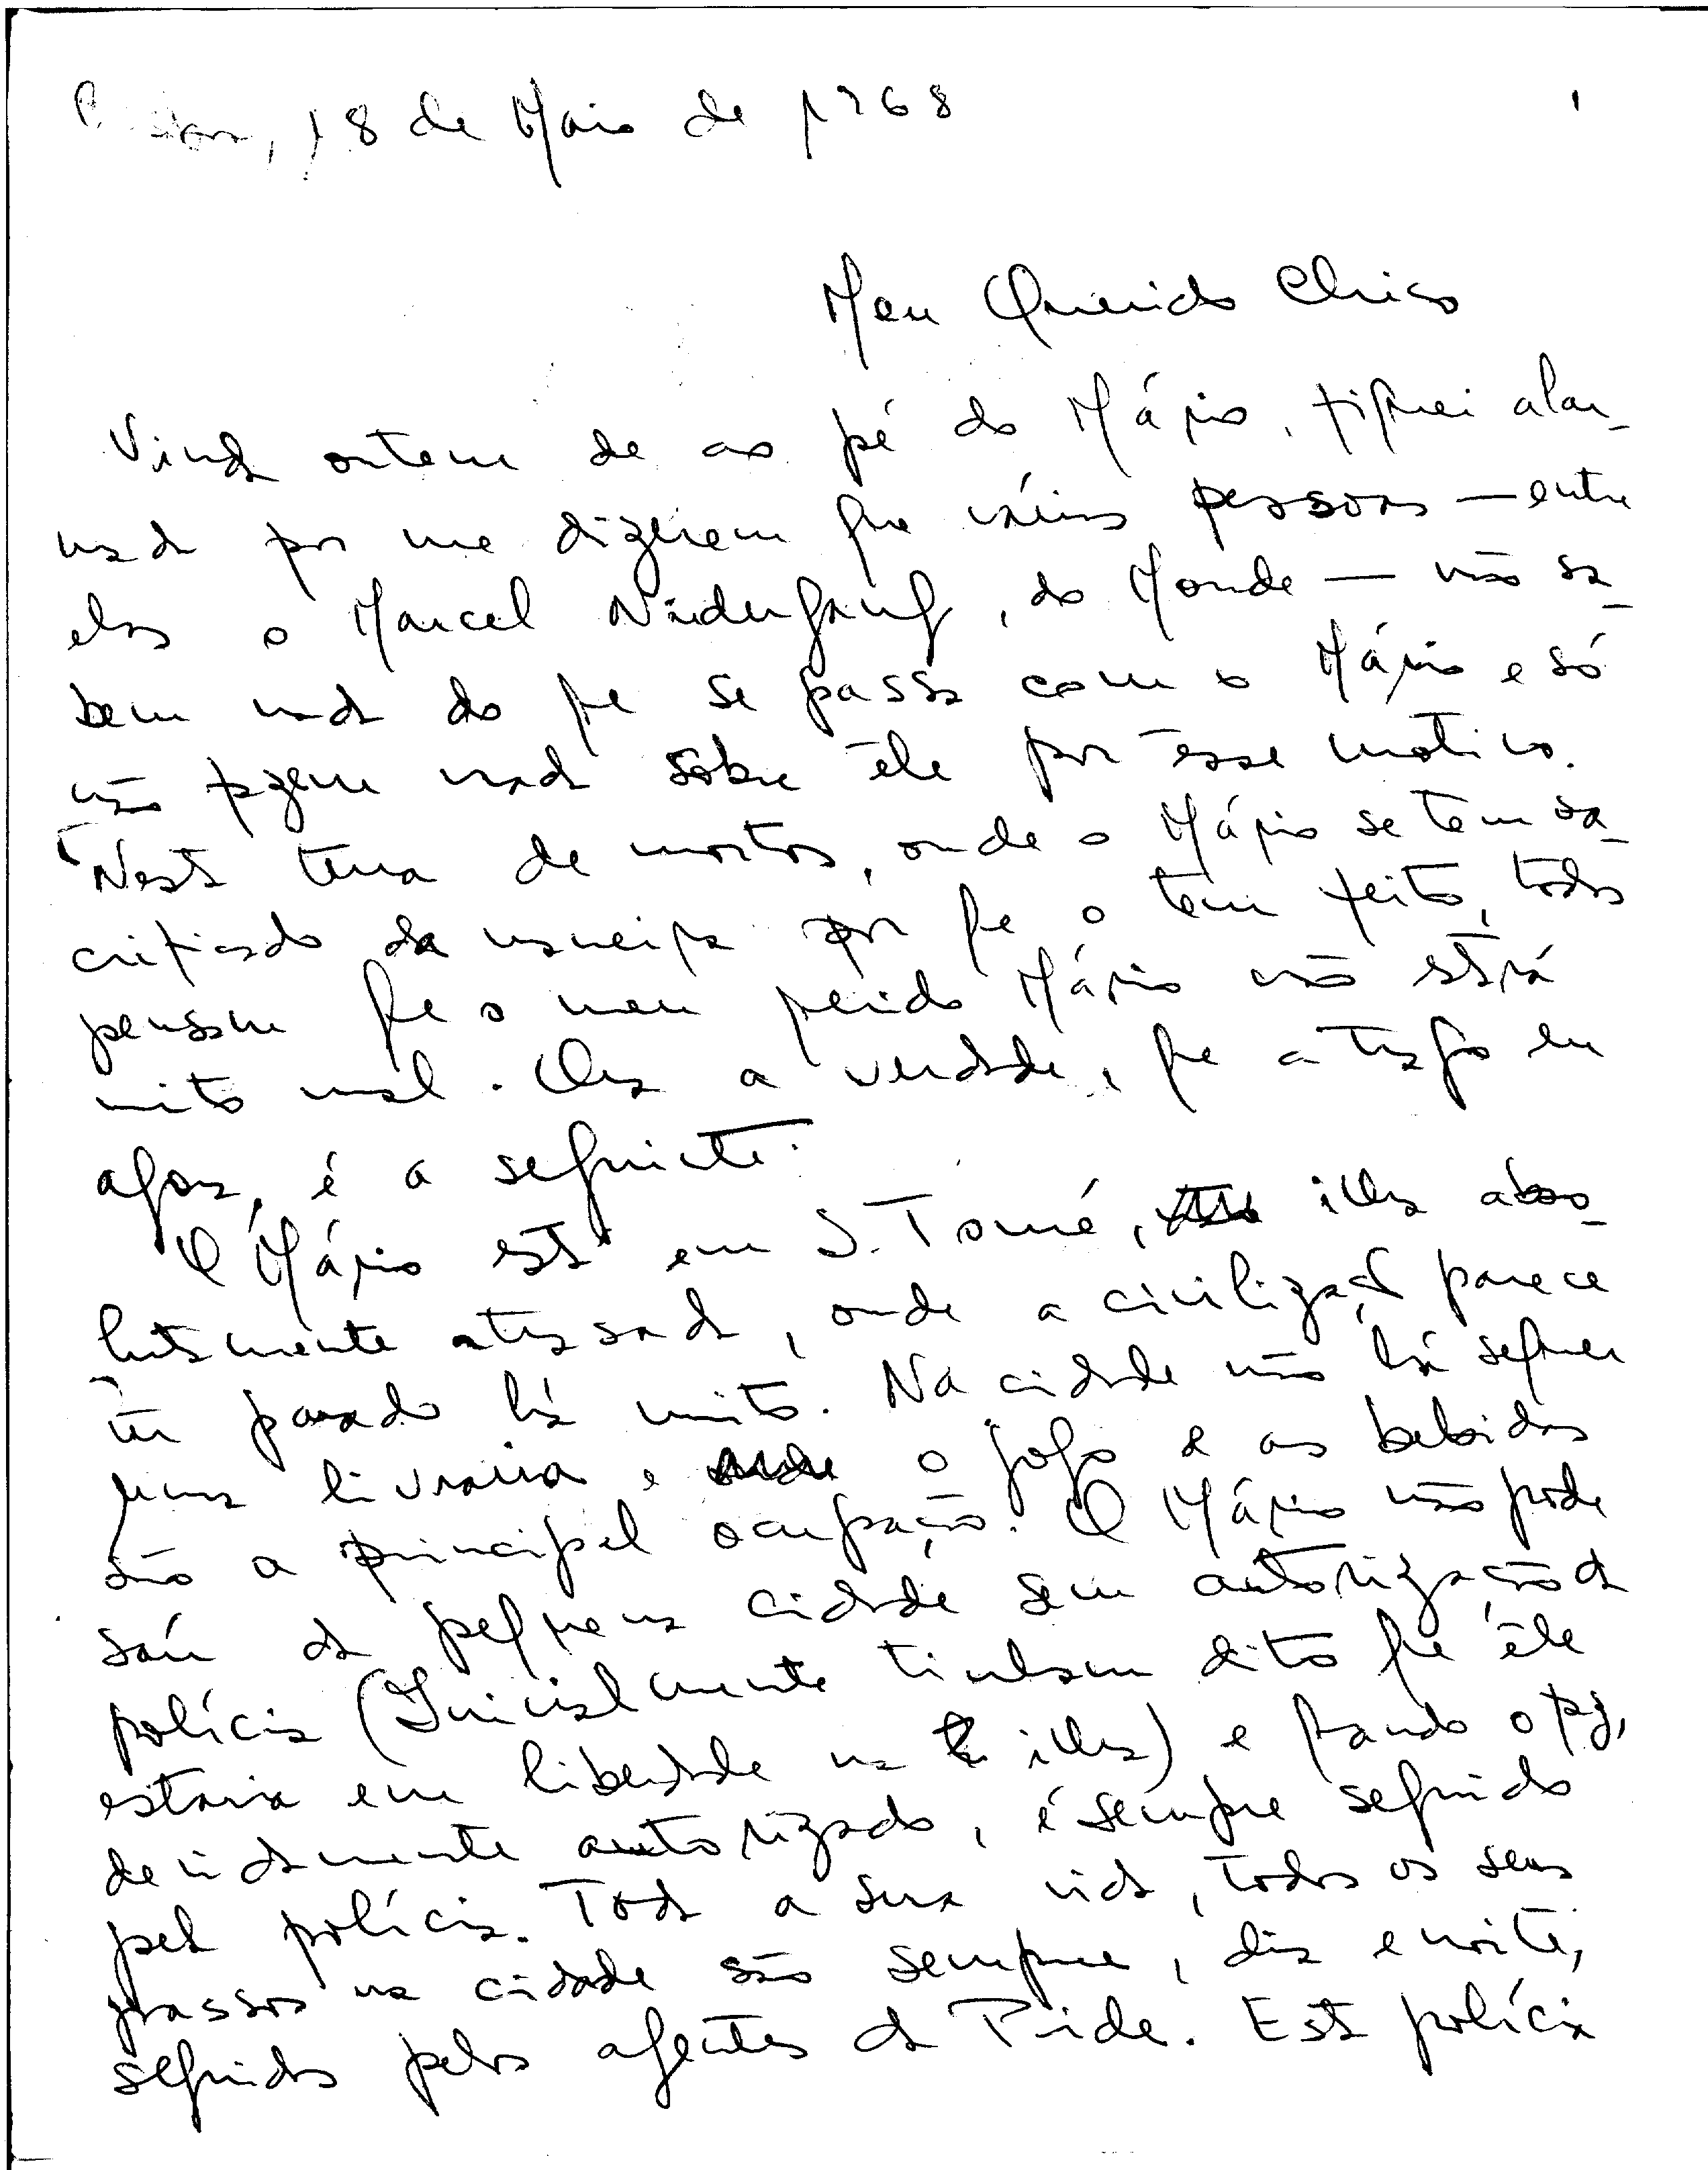 18 de Maio de 1968
1
Meu Querido Chico
Vinda ontem de ao pé do Mário, fiquei alar-
mada por me dizerem que várias pessoas — entre
elas o Marcel Niedergang, do Monde — não sa-
bem nada do que se passa com o Mário e só
não fazem nada sôbre êle por êsse motivo.
Nesta terra de mortos, onde o Mário se tem sa-
crificado da maneira por que o tem feito, todos
pensam que o meu querido Mário não estará
muito mal. Ora a verdade, que a trago eu
agora, é a seguinte:
O Mário está em S. Tomé, ilha abso-
lutamente atrasada, onde a civilização parece
ter parado há muito. Na cidade não há sequer
uma livraria e o jogo e as bebidas
são a principal ocupação. O Mário não pode
sair da pequena cidade sem autorização da
polícia (Inicialmente tinham dito que êle
estaria em liberdade na ilha) e quando o faz,
devidamente autorizado, é sempre seguido
pela polícia. Toda a sua vida, todos os seus
passos na cidade são sempre, dia e noite,
seguidos pelos agentes da Pide. Esta polícia